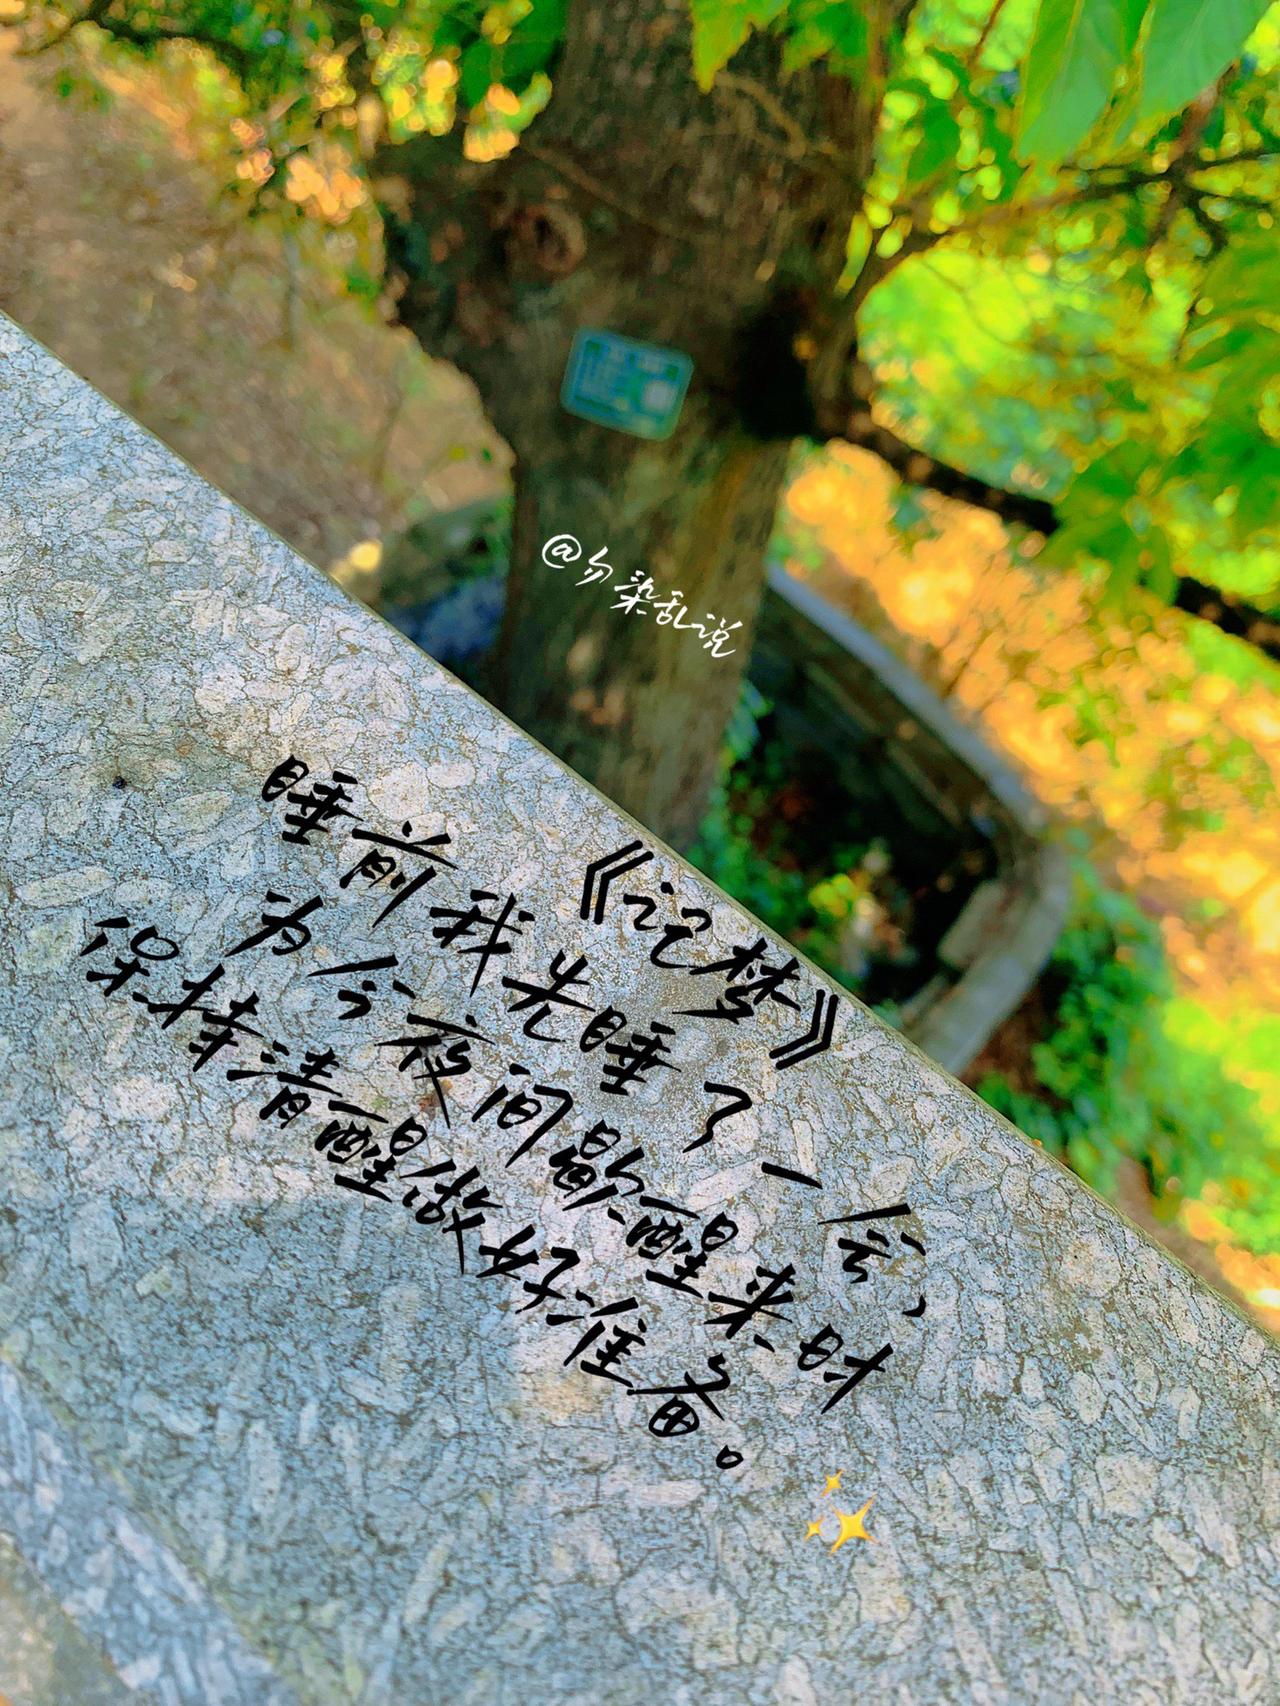 @勿染乱说
《记梦》
睡前我先睡了一会、
为今夜间歇醒来时
保持清醒做好准备。